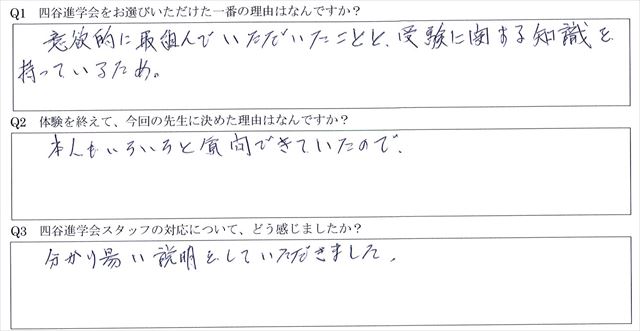 Q1 四谷進学会をお選びいただけた一番の理由はなんですか？
意欲的に取組んでいただいたことと、受験に関する知識を
持っているため。
Q2 体験を終えて、今回の先生に決めた理由はなんですか？
本人もいろいろと質問できていたので、
Q3 四谷進学会スタッフの対応について、どう感じましたか？
分かり易い説明をしていただきました。